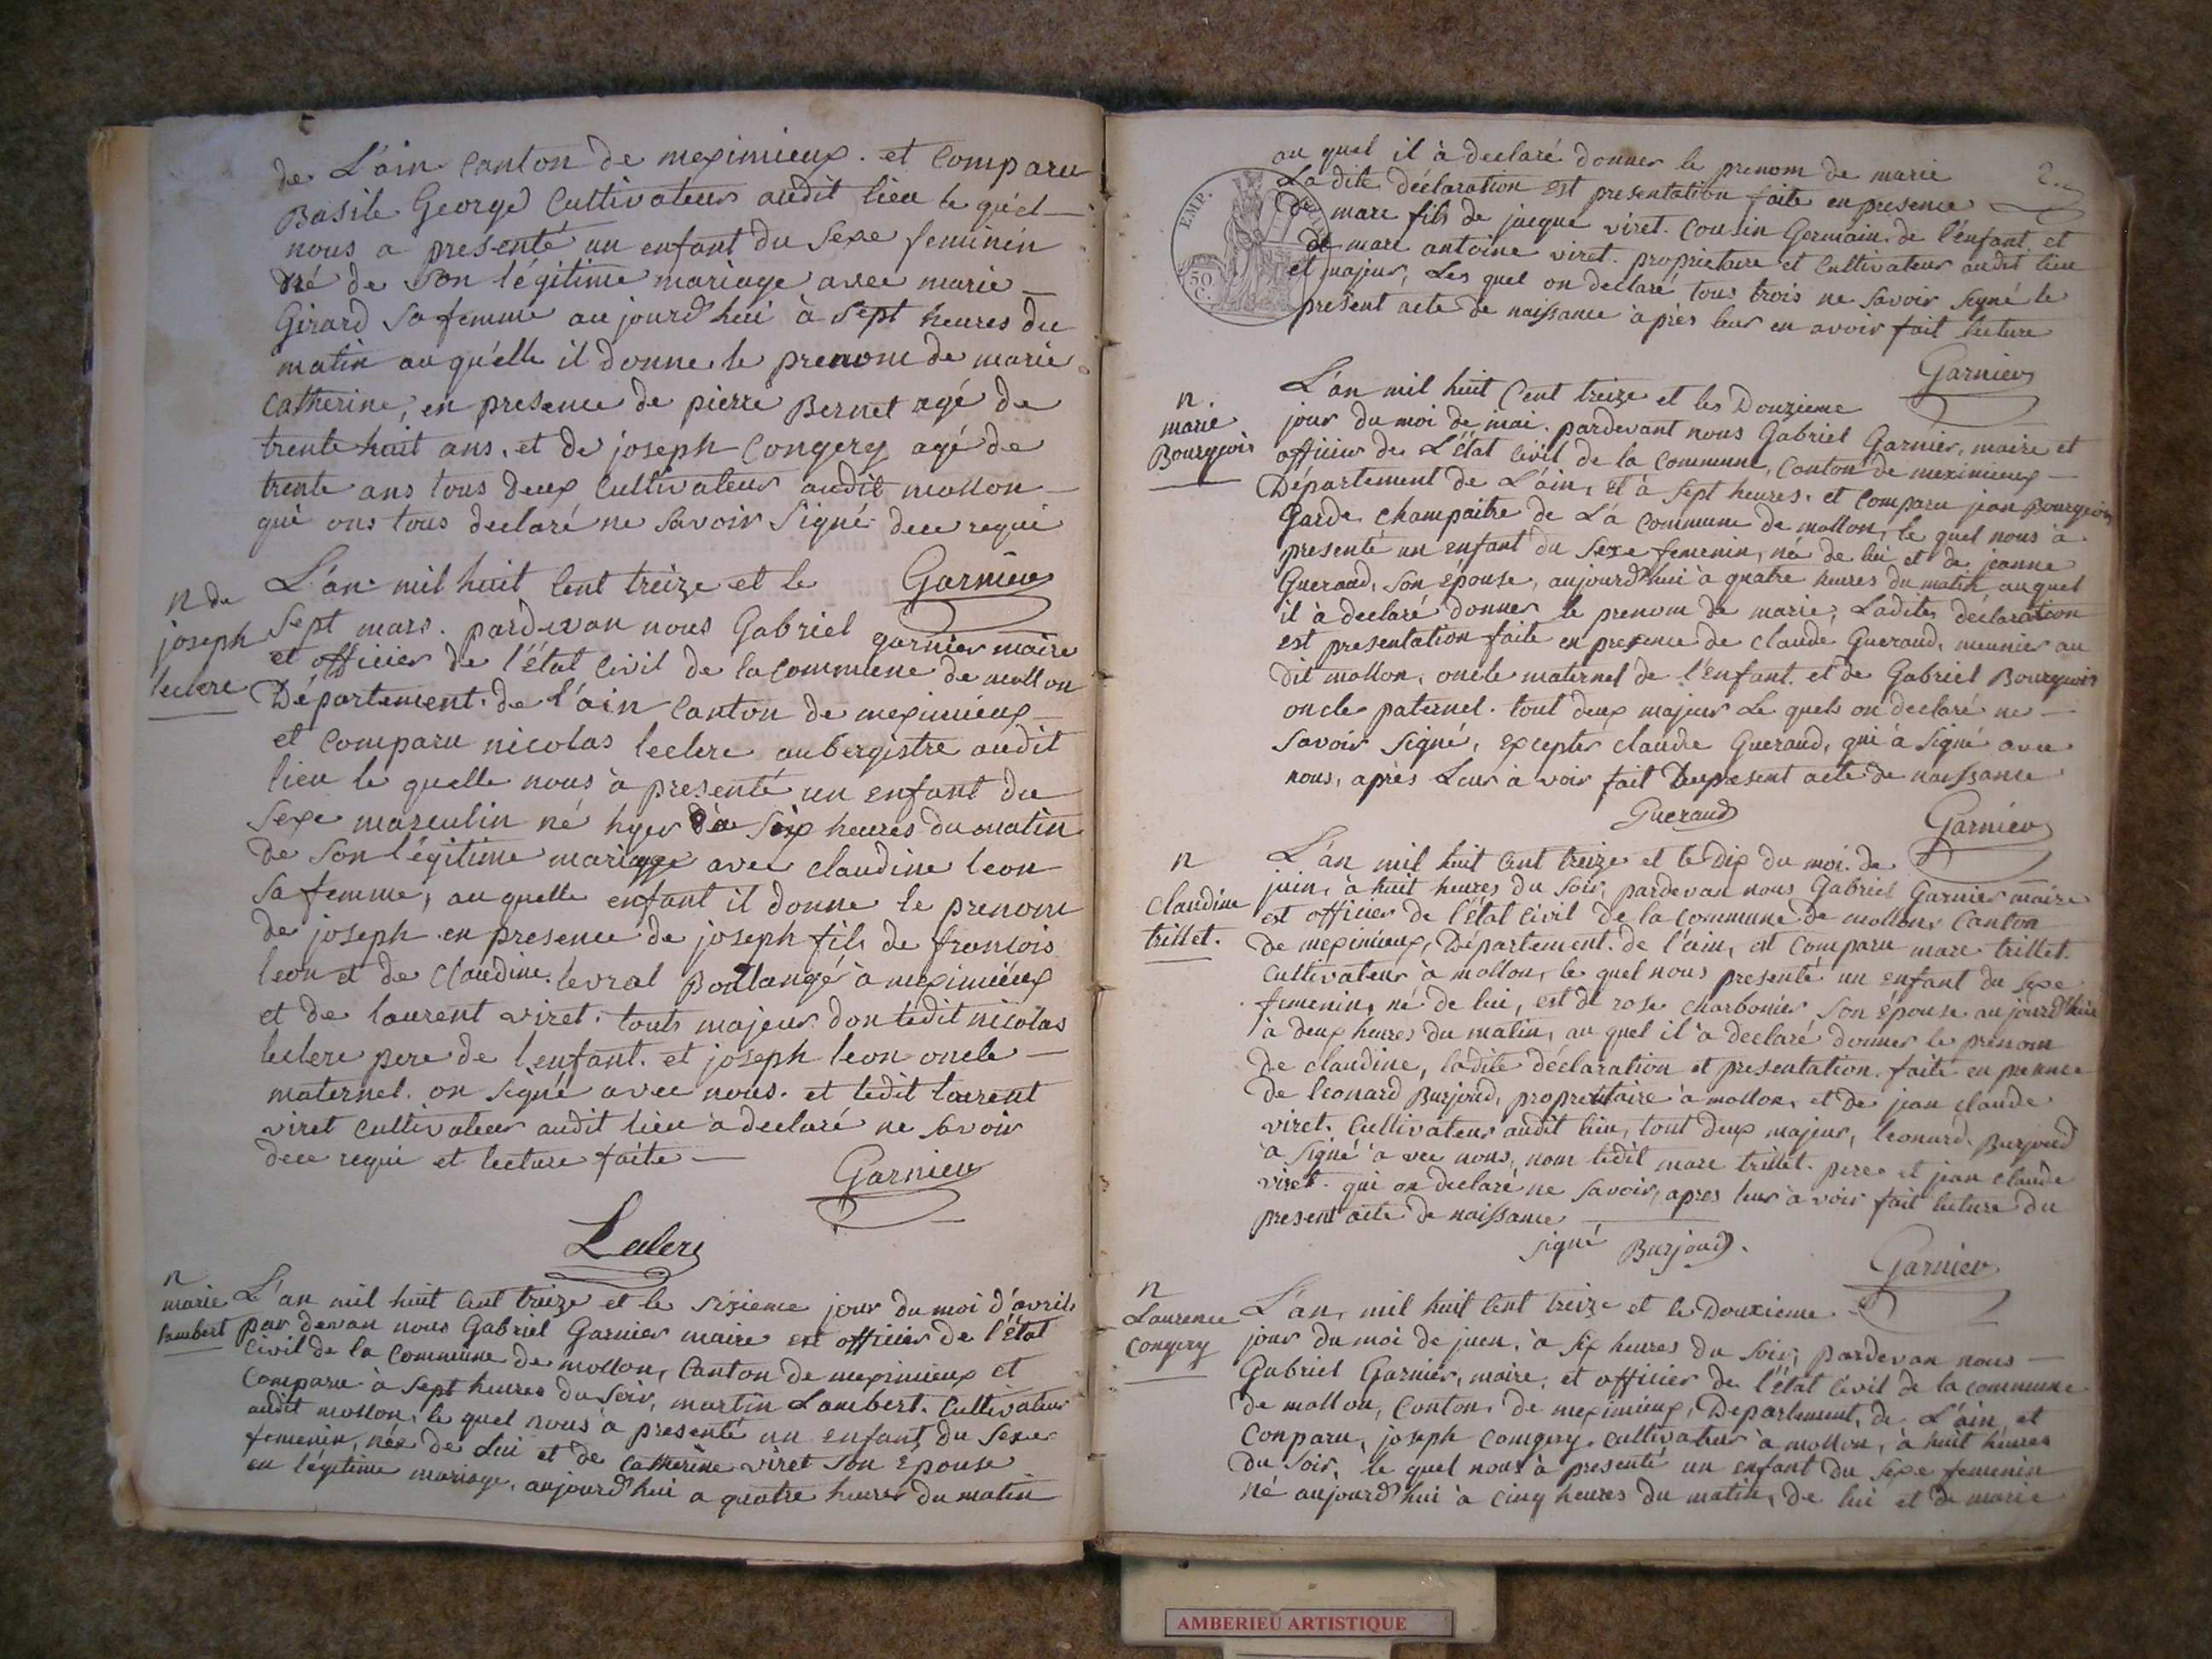 de L'ain Canton de meximieux. et Comparu
Basile George Cultivateur audit lieu le quel
nous a presenté un enfant du Sexe feminin
né de Son légitime mariage avec marie
Girard Sa femme aujourd'hui à Sept heures du
matin au quelle il donne le prenom de marie
Catherine, en presence de pierre Bernet agé de
trente huit ans, et de joseph Congery agé de
trente ans tous deux Cultivateur audit mollon
qui ons tous declaré ne Savoir Signé dece requi
Garnier
n de
joseph
leclere
L'an mil huit Cent treize et le
Sept mars. pardevan nous Gabriel garnier maire
et officier de l'état Civil de la Commune de mollon
Département de l'ain Canton de meximieux
et Comparu nicolas leclere aubergistre audit
lieu le quelle nous à presenté un enfant du
Sexe masculin né hyer à Six heures du matin
de Son légitime mariage avec claudine leon
Sa femme, au quelle enfant il donne le prenom
de joseph en presence de joseph fils de francois
leon et de Claudine levral Boulangé à meximieux
et de laurent viret. touts majeur dontledit nicolas
leclere pere de l'enfant. et joseph leon oncle
maternel. on Signé avec nous. et ledit laurent
viret Cultivateur audit lieu à declaré ne Savoir
dece requi et lecture faite
Garnier
Leclerc
n
marie
lambert
L'an mil huit Cent treize et le Sixieme jour du moi d'avril
par devan nous Gabriel Garnier maire est officier de l'état
Civil de la Commune de mollon, Canton de meximieux et
Comparu à Sept heures du Soir, martin Lambert. Cultivateur
audit mollon, le quel nous à presenté un enfant du Sexe
femenin, née de Lui et de Catherine viret Son Epouse
en légitime mariage, aujourd'hui a quatre heures du matin
2.
EMP.
50
C.
au quel il à declaré donner le prenom de marie
La dite déclaration est presentation faite en presence
de marc fils de jacque viret. Cousin Germain de l'enfant. et
de marc antoine viret. proprietaire et Cultivateur audit lieu
et majeur, Les quel on declaré tous trois ne Savoir Signé le
present acte de naissance àprès leur en avoir fait lecture
Garnier
n.
marie
Bourgeois
L'an mil huit Cent treize et les Douzieme
jour du moi de mai. pardevant nous Gabriel Garnier, maire et
officier de L'état Civil de la Commune, Canton de meximieux
Département de L'ain, et à Sept heures. et Comparu jean Bourgeois
Garde champaitre de La Commune de mollon, le quel nous à
presenté un enfant du Sexe femenin, né de lui et de jeanne
Gueraud, Son Epouse, aujourd'hui à quatre heures du matin, au quel
il à declaré donner le prenom de marie, Ladite declaration
est presentation faite en presence de claude Gueraud, meunier au
dit mollon, oncle maternel de l'enfant. et de Gabriel Bourgeois
oncle paternel. tout deux majeur Le quels on declaré ne
Savoir Signé, excepter claude Gueraud, qui à Signé avec
nous, après Leur à voir fait present acte de naissance
Gueraud
Garnier
n
Claudine
trillet.
L'an mil huit Cent treize et le dix du moi de
juin, à huit heures du Soir, pardevan nous Gabriel Garnier maire
est officier de l'état Civil de la Commune de mollon, Canton
de meximieux, Département de l'ain, est Comparu marc trillet.
Cultivateur à mollon, le quel nous presenté un enfant du Sexe
femenin, né de lui, est de rose charbonier Son épouse aujourd'hui
à deux heures du matin, au quel il à declaré donner le prenom
de claudine, ladite déclaration et presentation. faite en presence
de leonard Burjoud, proprietaire à mollon, et de jean claude
viret. Cultivateur audit lieu, tout deux majeur, leonard. Burjoud
à Signé à vec nous, nom ledit marc trillet. pere et jean claude
viret. qui on declaré ne Savoir, apres leur à voir fait lecture du
present acte de naissance
signé Burjoud.
Garnier
n
Laurence
Congery
L'an, mil huit Cent treize et le Douxieme
jour du moi de juen, à Six heures du Soir, pardevan nous
Gabriel Garnier, maire, et officier de l'état Civil de la Commune
de mollon, Conton, de meximieux, Departement, de L'ain, et
Conparu, joseph Comgery. cultivateur à mollon, à huit heures
du Soir, le quel nous à presenté un enfant du Sexe femenin
né aujourd'hui à Cinq heures du matin, de lui et de marie
AMBERIEU ARTISTIQUE